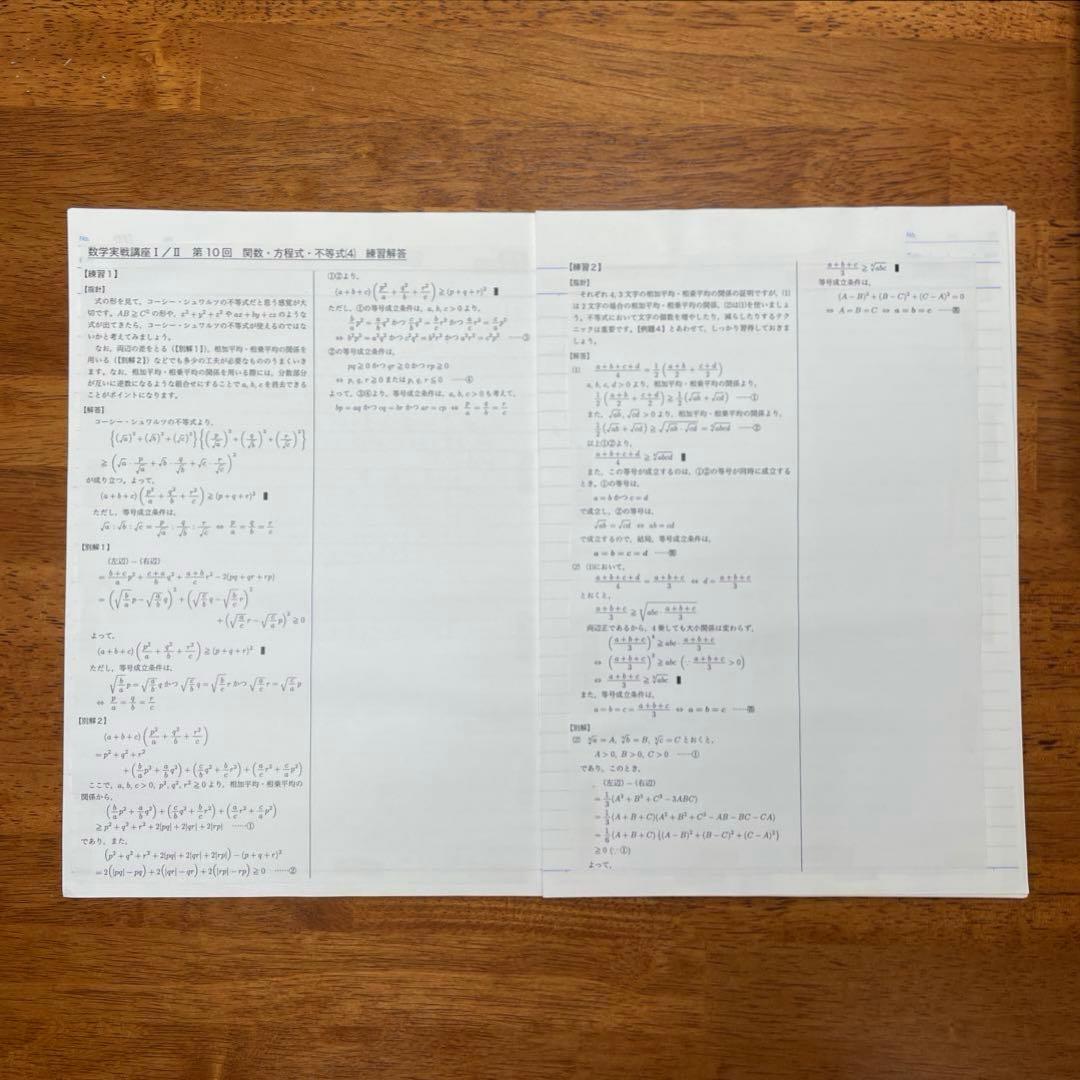 No.
数学実戦講座Ⅰ/Ⅱ 第10回 関数・方程式・不等式(4) 練習解答
【練習1】
【指針】
式の形を見て、コーシー・シュワルツの不等式だと思う感覚が大
切です。AB≧C² の形や、x²+y²+z² や ax+by+cz のような
式が出てきたら、コーシー・シュワルツの不等式が使えるのではな
いかと考えてみましょう。
なお、両辺の差をとる(【別解1】)、相加平均・相乗平均の関係を
用いる(【別解2】)などでも多少の工夫が必要なもののうまくいきま
す。なお、相加平均・相乗平均の関係を用いる際には、分数部分
が互いに逆数になるような組合せにすることで a, b, c を消去できる
ことがポイントになります。
【解答】
コーシー・シュワルツの不等式より、
{(√a)²+(√b)²+(√c)²}{(p/√a)²+(q/√b)²+(r/√c)²}
≧(√a・p/√a+√b・q/√b+√c・r/√c)²
が成り立つ。よって、
(a+b+c)(p²/a+q²/b+r²/c)≧(p+q+r)² ▮
ただし、等号成立条件は、
√a:√b:√c=p/√a:q/√b:r/√c ⇔ p/a=q/b=r/c
【別解1】
(左辺)-(右辺)
=(b+c)/a p²+(c+a)/b q²+(a+b)/c r²-2(pq+qr+rp)
=(√(b/a) p-√(a/b) q)²+(√(c/b) q-√(b/c) r)²
+(√(a/c) r-√(c/a) p)²≧0
よって、
(a+b+c)(p²/a+q²/b+r²/c)≧(p+q+r)² ▮
ただし、等号成立条件は、
√(b/a) p=√(a/b) q かつ √(c/b) q=√(b/c) r かつ √(a/c) r=√(c/a) p
⇔ p/a=q/b=r/c
【別解2】
(a+b+c)(p²/a+q²/b+r²/c)
=p²+q²+r²
+(b/a p²+a/b q²)+(c/b q²+b/c r²)+(a/c r²+c/a p²)
ここで、a, b, c>0, p², q², r²≧0 より、相加平均・相乗平均の
関係から、
(b/a p²+a/b q²)+(c/b q²+b/c r²)+(a/c r²+c/a p²)
≧p²+q²+r²+2|pq|+2|qr|+2|rp| ……①
であり、また、
(p²+q²+r²+2|pq|+2|qr|+2|rp|)-(p+q+r)²
=2(|pq|-pq)+2(|qr|-qr)+2(|rp|-rp)≧0 ……②
①②より、
(a+b+c)(p²/a+q²/b+r²/c)≧(p+q+r)² ▮
ただし、①の等号成立条件は、a, b, c>0 より、
b/a p²=a/b q² かつ c/b q²=b/c r² かつ a/c r²=c/a p²
⇔ b²p²=a²q² かつ c²q²=b²r² かつ a²r²=c²p² ……③
②の等号成立条件は、
pq≧0 かつ qr≧0 かつ rp≧0
⇔ p, q, r≧0 または p, q, r≦0 ……④
よって、③④より、等号成立条件は、a, b, c>0 も考えて、
bp=aq かつ cq=br かつ ar=cp ⇔ p/a=q/b=r/c
No.
【練習2】
【指針】
それぞれ4, 3文字の相加平均・相乗平均の関係の証明ですが、(1)
は2文字の場合の相加平均・相乗平均の関係、(2)は(1)を使いましょ
う。不等式において文字の個数を増やしたり、減らしたりするテク
ニックは重要です。【例題4】とあわせて、しっかり習得しておきま
しょう。
【解答】
(1) (a+b+c+d)/4=1/2((a+b)/2+(c+d)/2)
a, b, c, d>0 より、相加平均・相乗平均の関係より、
1/2((a+b)/2+(c+d)/2)≧1/2(√ab+√cd) ……①
また、√ab, √cd>0 より、相加平均・相乗平均の関係より、
1/2(√ab+√cd)≧√(√ab・√cd)=⁴√abcd ……②
以上①②より、
(a+b+c+d)/4≧⁴√abcd ▮
また、この等号が成立するのは、①②の等号が同時に成立する
とき。①の等号は、
a=b かつ c=d
で成立し、②の等号は、
√ab=√cd ⇔ ab=cd
で成立するので、結局、等号成立条件は、
a=b=c=d ……答
(2) (1)において、
(a+b+c+d)/4=(a+b+c)/3 ⇔ d=(a+b+c)/3
とおくと、
(a+b+c)/3≧⁴√(abc・(a+b+c)/3)
両辺正であるから、4乗しても大小関係は変わらず、
((a+b+c)/3)⁴≧abc・(a+b+c)/3
⇔ ((a+b+c)/3)³≧abc (∵(a+b+c)/3>0)
⇔ (a+b+c)/3≧³√abc ▮
また、等号成立条件は、
a=b=c=(a+b+c)/3 ⇔ a=b=c ……答
【別解】
(2) ³√a=A, ³√b=B, ³√c=C とおくと、
A>0, B>0, C>0 ……①
であり、このとき、
(左辺)-(右辺)
=1/3(A³+B³+C³-3ABC)
=1/3(A+B+C)(A²+B²+C²-AB-BC-CA)
=1/6(A+B+C){(A-B)²+(B-C)²+(C-A)²}
≧0 (∵①)
よって、
(a+b+c)/3≧³√abc ▮
等号成立条件は、
(A-B)²+(B-C)²+(C-A)²=0
⇔ A=B=C ⇔ a=b=c ……答